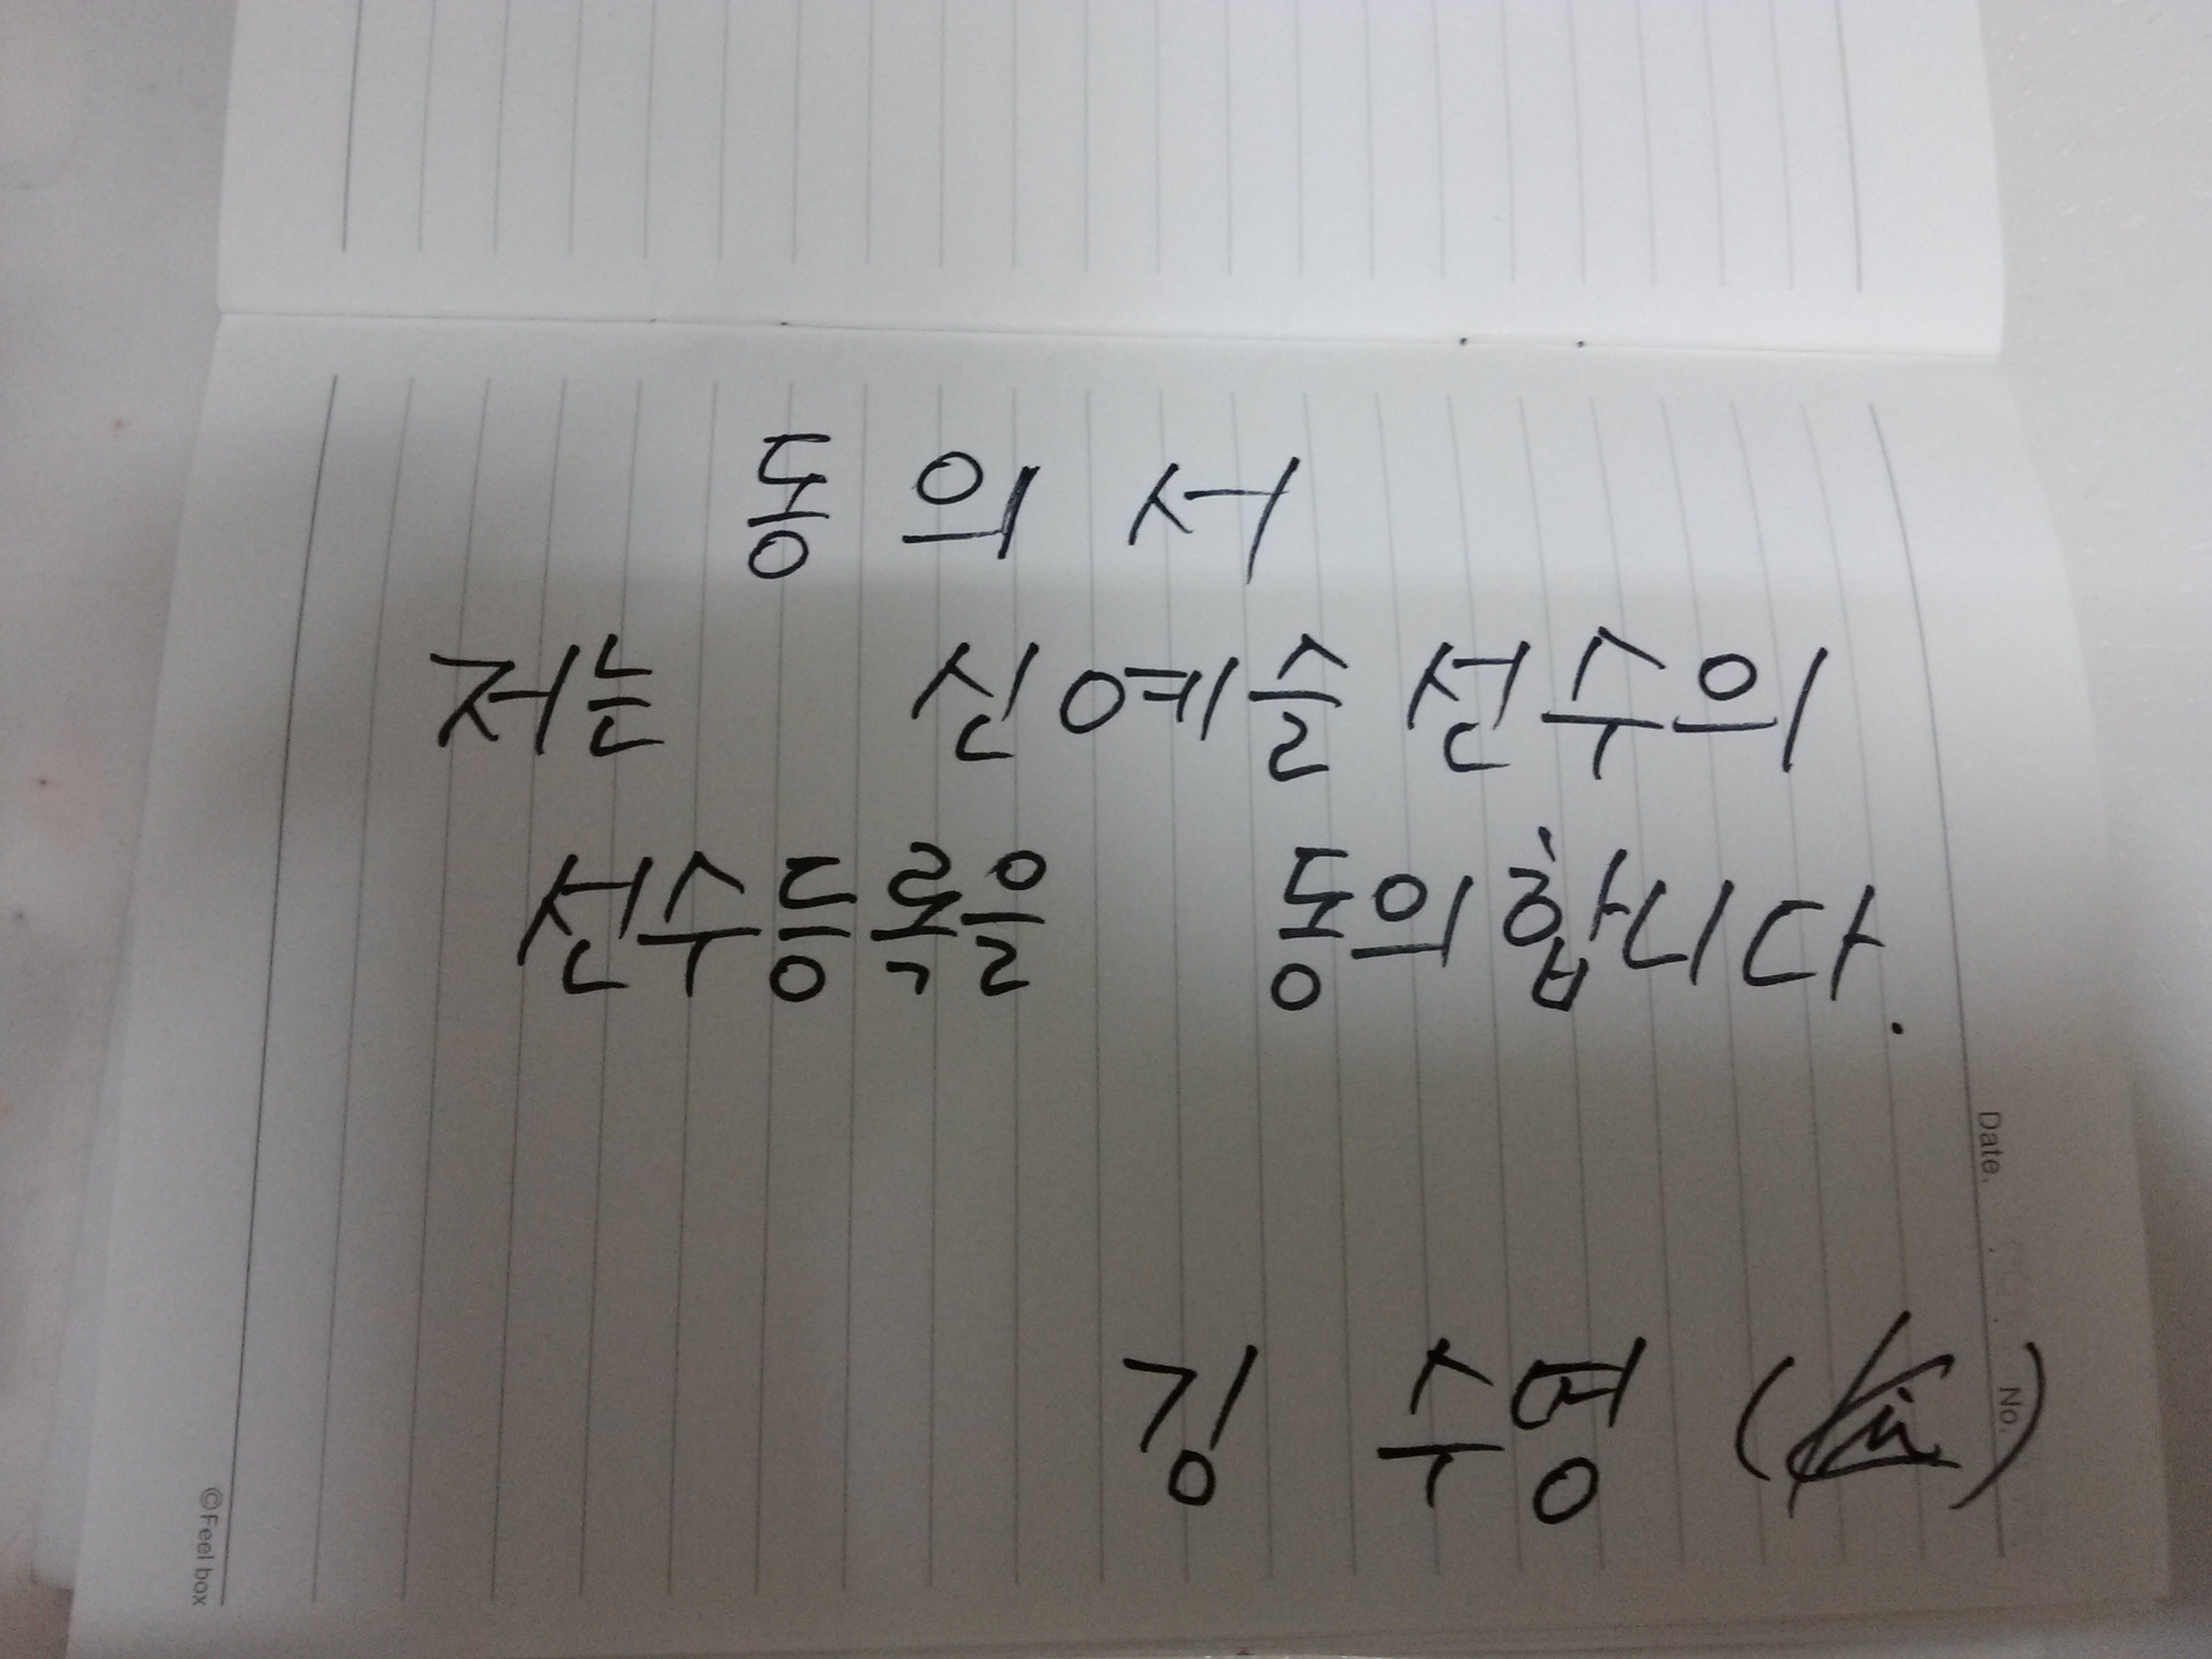 동의서
저는 신예슬 선수의
선수등록을 동의합니다.
김 수명 ( )
Date. . .
No.
©Feel box